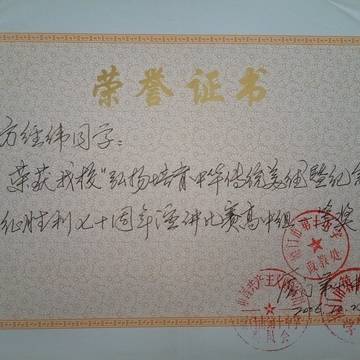 荣誉证书
方经纬同学：
荣获我校“弘扬培育中华传统美德暨纪念
征胜利七十周年演讲比赛高中组一等奖
政教处